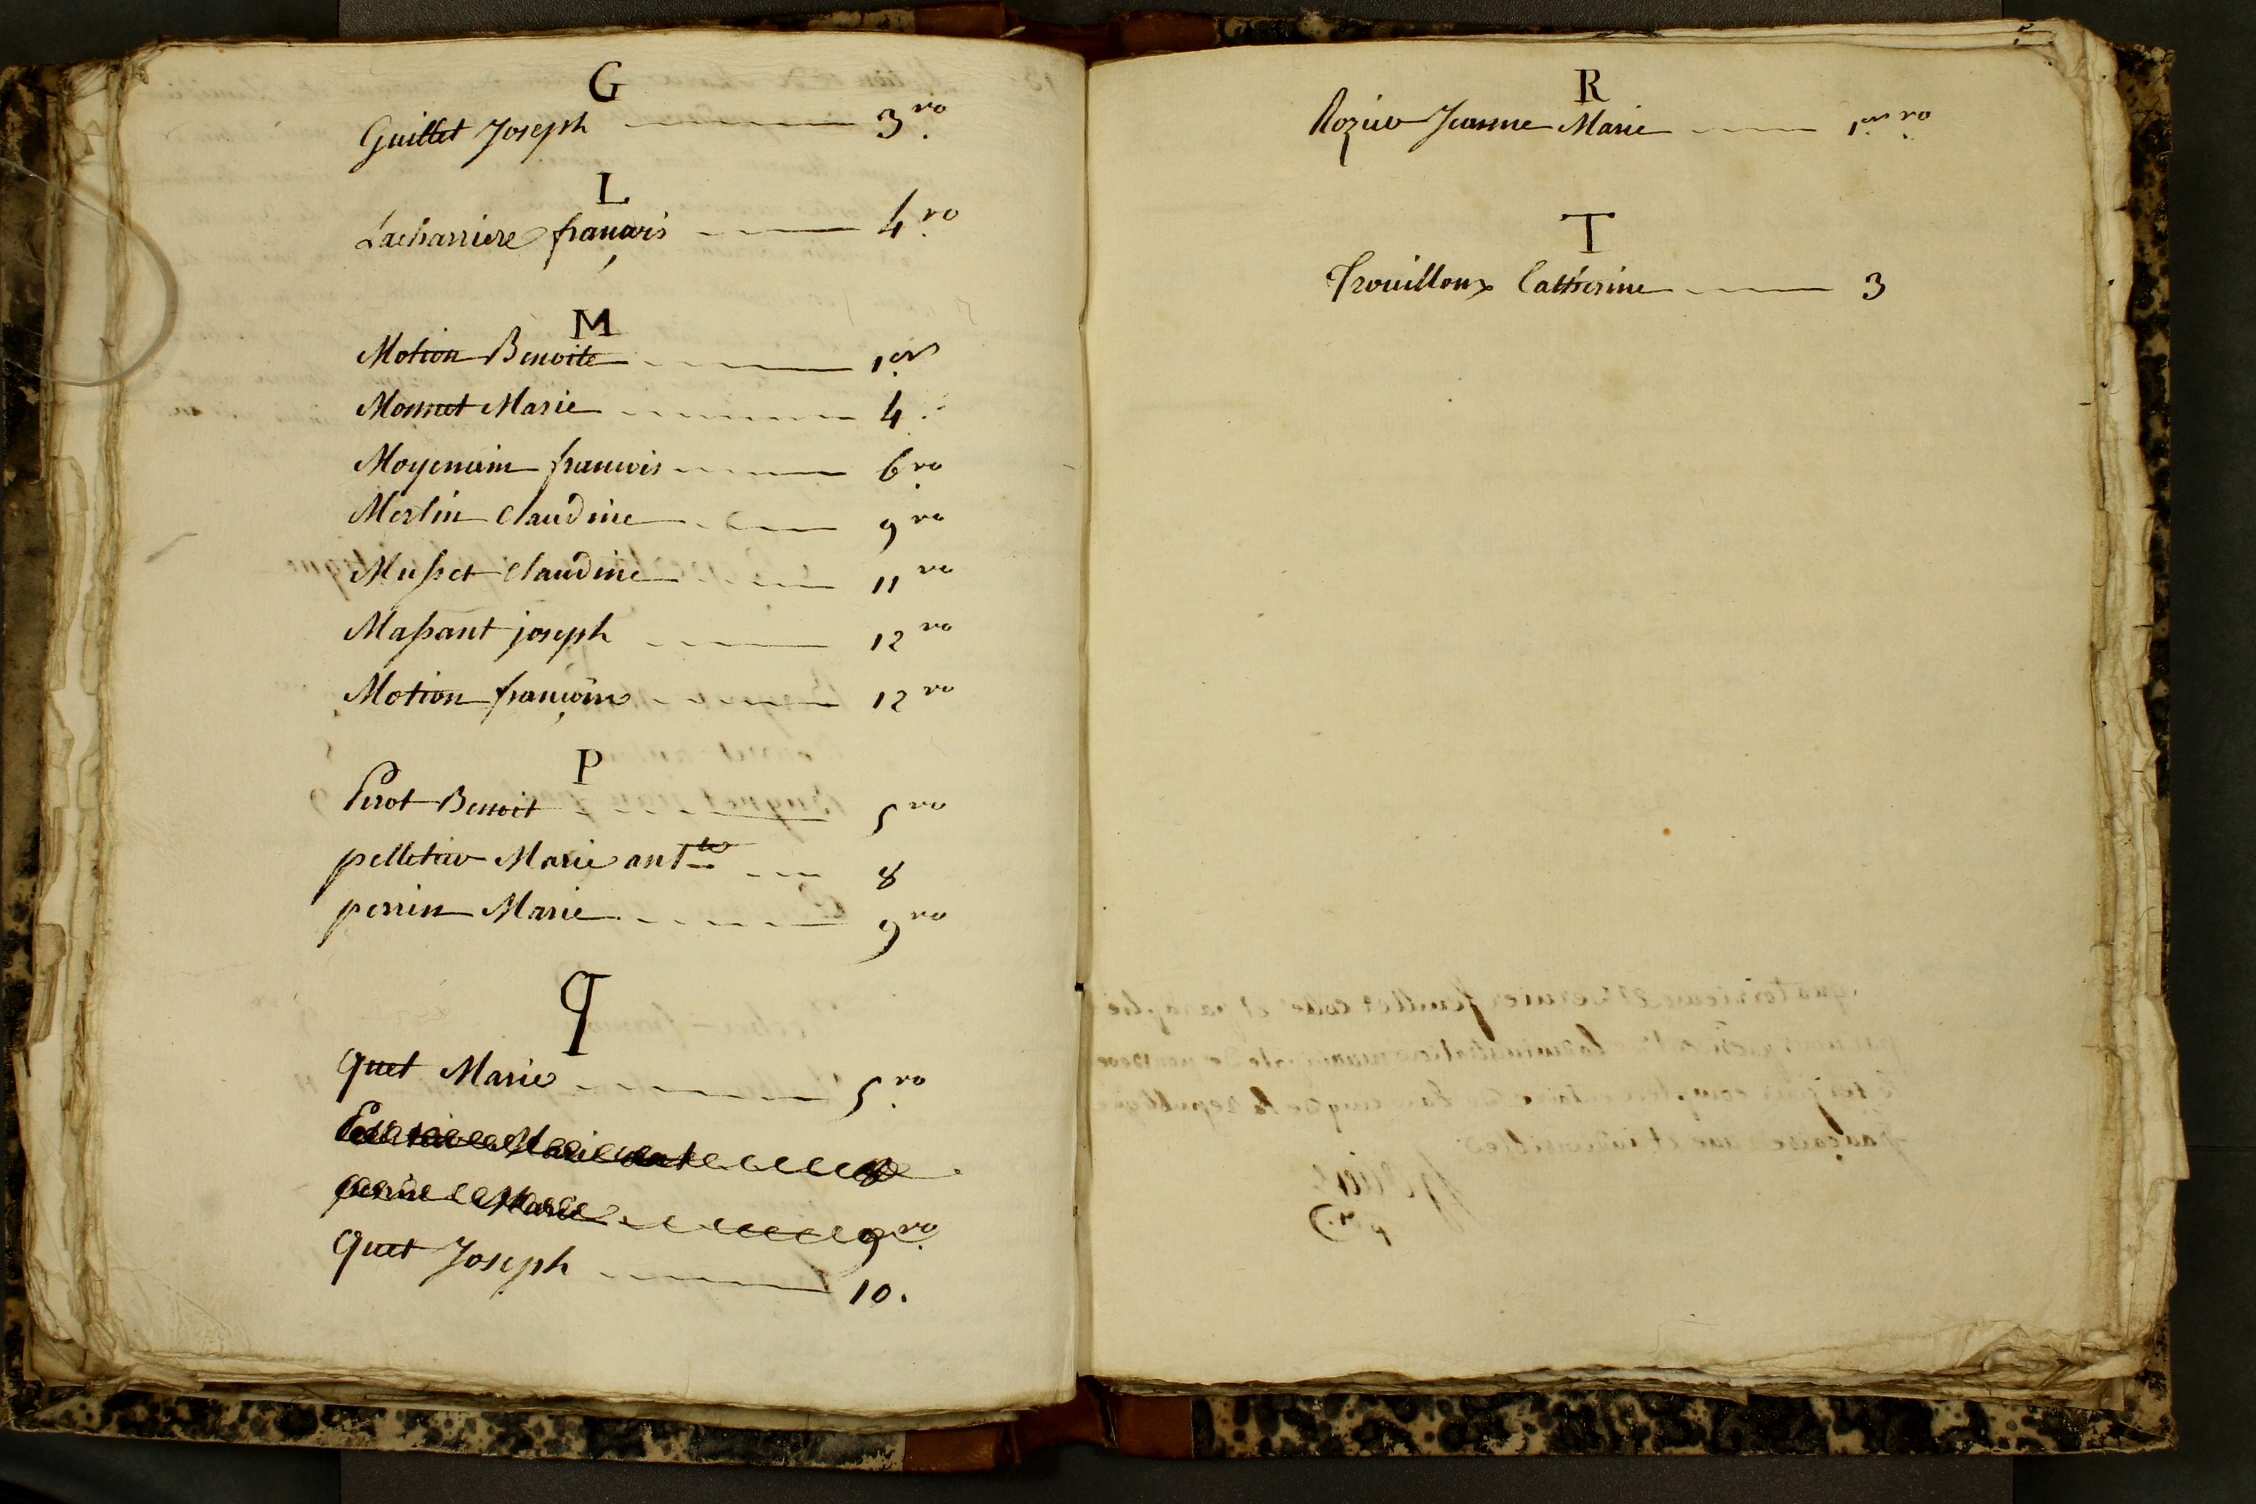 G
Guillet Joseph 3 ro
L
Lacharriere françois 4 ro
M
Motion Benoite 1er
Monnet Marie 4
Moyenin francois 6 ro
Merlin Claudine 9 ro
Musset Claudine 11 ro
Massant joseph 12 ro
Motion françoise 12 ro
P
Perot Benoit 5 ro
pelletier Marie antte 8
perrin Marie 9 ro
Q
quet Marie 5 ro
Pelletier Marie ant 8
perrin Marie 9 ro
quet Joseph 10.
R
Rozier Jeanne Marie 1er ro
T
Trouilloux Catherine 3